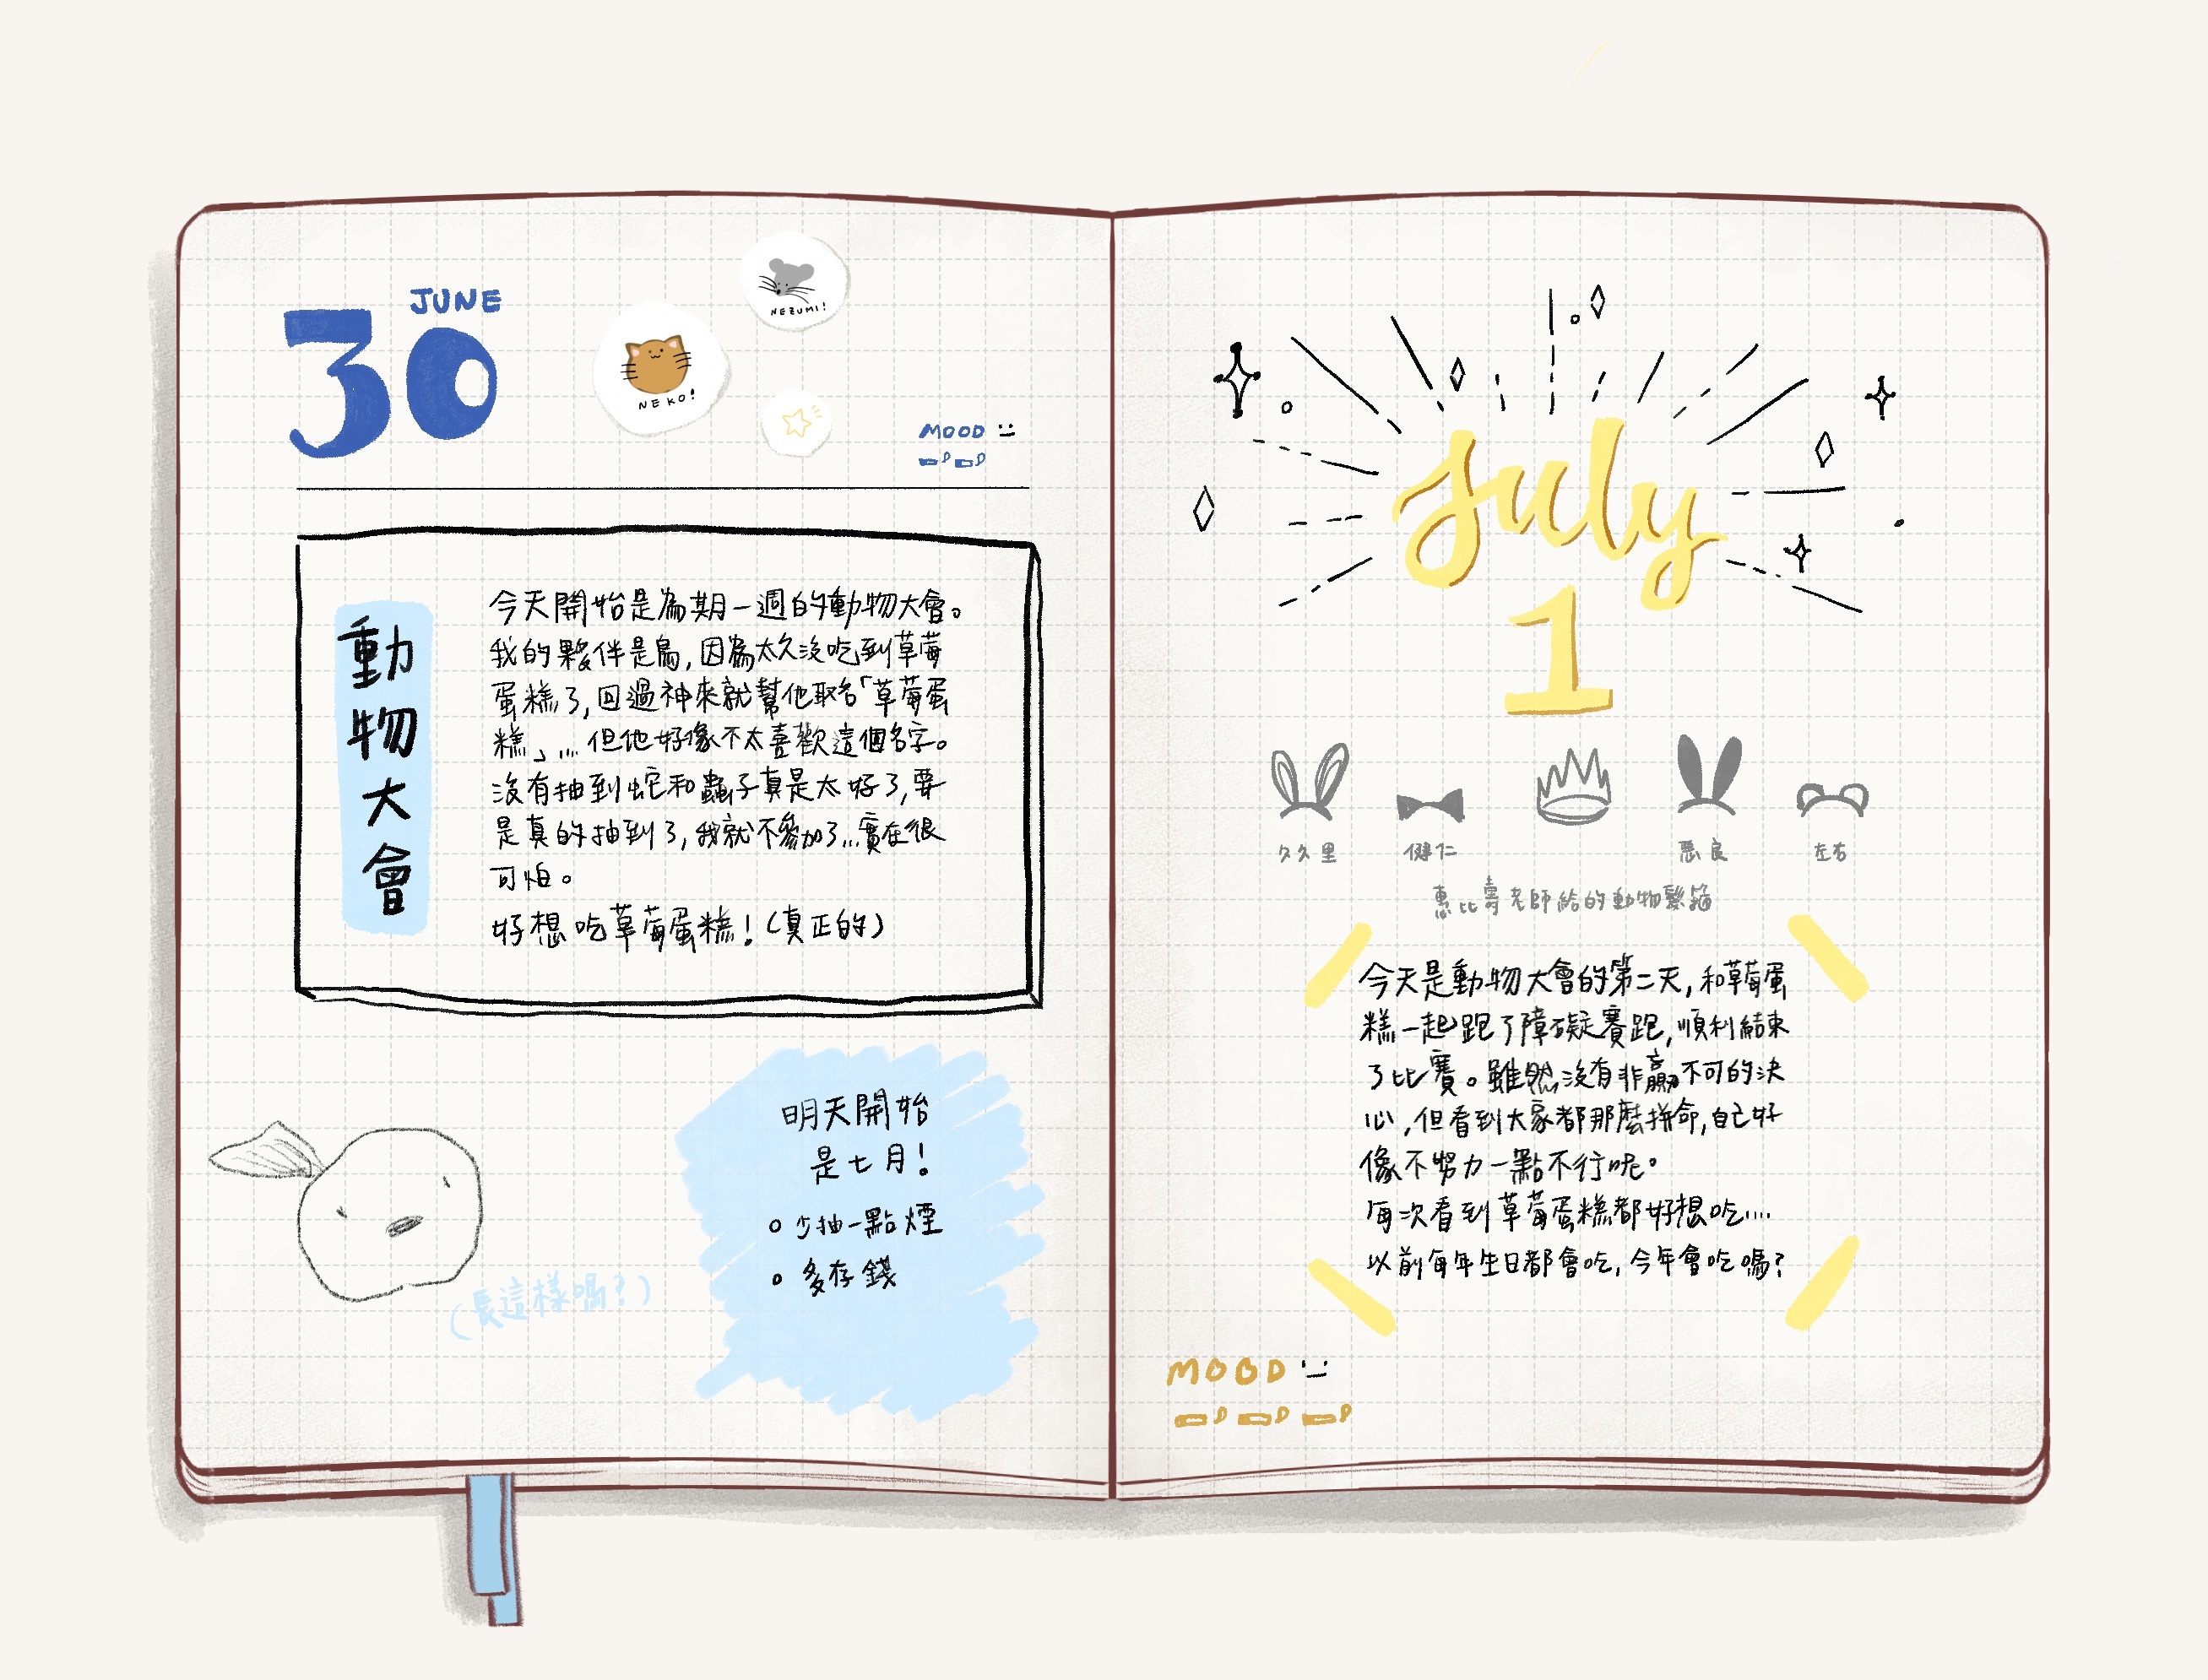 JUNE
30
NEZUMI!
NEKO!
MOOD
動物大會
今天開始是為期一週的動物大會。
我的夥伴是鳥,因為太久沒吃到草莓
蛋糕了,回過神來就幫他取名「草莓蛋
糕」...但他好像不太喜歡這個名字。
沒有抽到蛇和蟲子真是太好了,要
是真的抽到了,我就不參加了...實在很
可怕。
好想吃草莓蛋糕!(真正的)
(長這樣嗎?)
明天開始
是七月!
少抽一點煙
多存錢
July
1
久久里 健仁 惡良 左右
惠比壽老師給的動物髮箍
今天是動物大會的第二天,和草莓蛋
糕一起跑了障礙賽跑,順利結束
了比賽。雖然沒有非贏不可的決
心,但看到大家都那麼拼命,自己好
像不努力一點不行呢。
每次看到草莓蛋糕都好想吃....
以前每年生日都會吃,今年會吃嗎?
MOOD